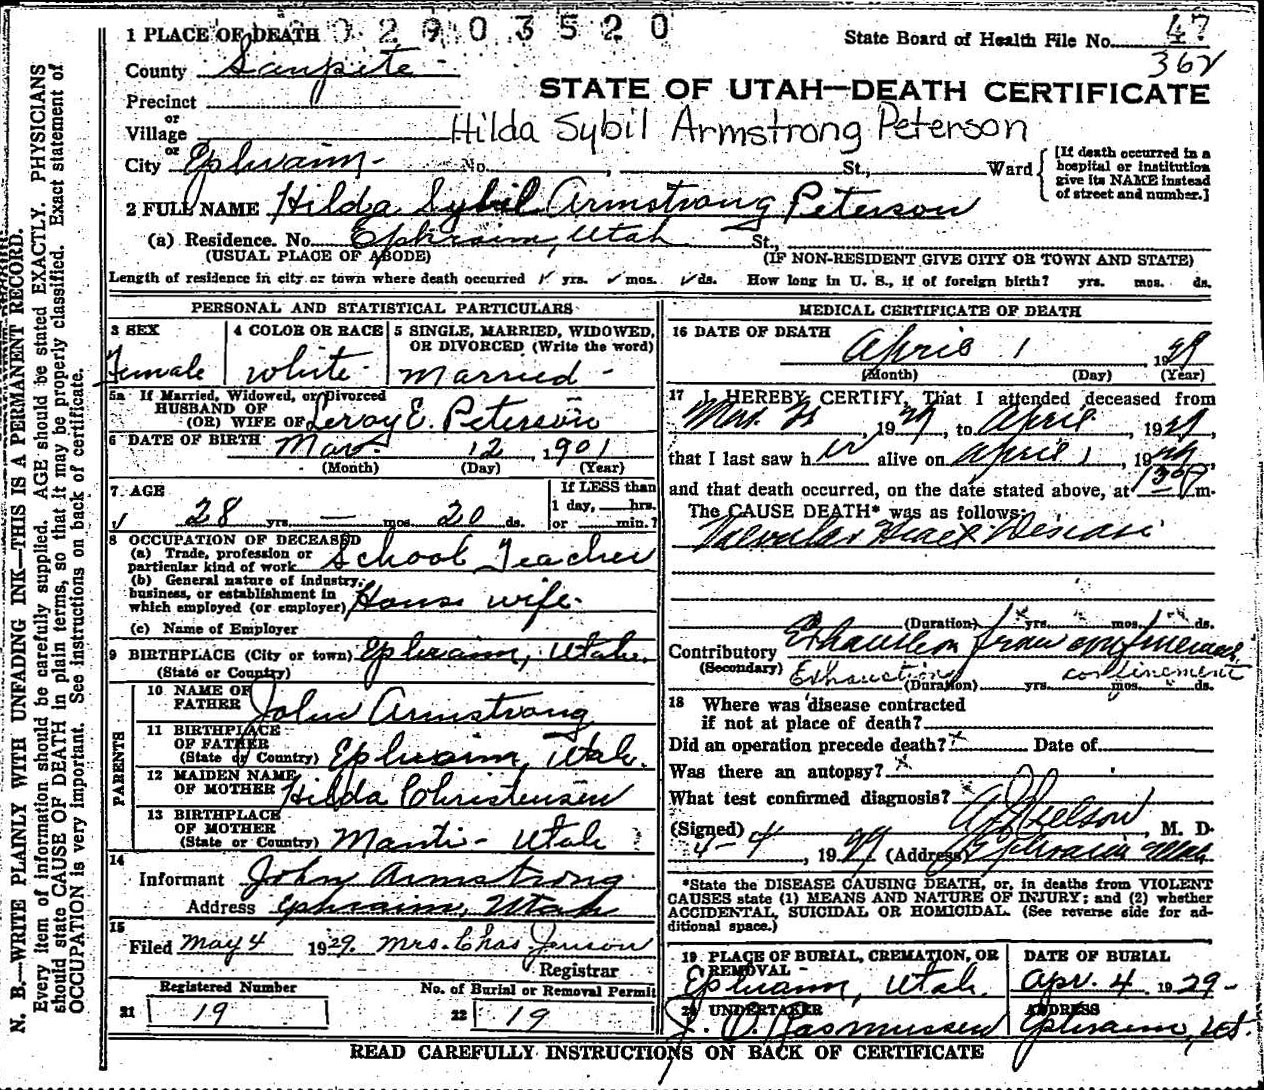 1 PLACE OF DEATH 02903520
State Board of Health File No. 47
362
County Sanpete
STATE OF UTAH—DEATH CERTIFICATE
Precinct
or
Village
Hilda Sybil Armstrong Peterson
or
City Ephraim No. , St., Ward
[If death occurred in a hospital or institution give its NAME instead of street and number.]
2 FULL NAME Hilda Sybil Armstrong Peterson
(a) Residence. No. Ephraim, Utah St.,
(USUAL PLACE OF ABODE) (IF NON-RESIDENT GIVE CITY OR TOWN AND STATE)
Length of residence in city or town where death occurred yrs. mos. ds. How long in U. S., if of foreign birth? yrs. mos. ds.
PERSONAL AND STATISTICAL PARTICULARS
3 SEX
Female
4 COLOR OR RACE
White
5 SINGLE, MARRIED, WIDOWED, OR DIVORCED (Write the word)
Married
5a If Married, Widowed, or Divorced
HUSBAND OF
(OR) WIFE OF Leroy E. Peterson
6 DATE OF BIRTH Mar. 12, 1901
(Month) (Day) (Year)
7 AGE
28 yrs. — mos. 20 ds.
If LESS than
1 day, hrs.
or min.?
8 OCCUPATION OF DECEASED
(a) Trade, profession or particular kind of work School Teacher
(b) General nature of industry, business, or establishment in which employed (or employer) House wife
(c) Name of Employer
9 BIRTHPLACE (City or town) Ephraim, Utah.
(State or Country)
PARENTS
10 NAME OF FATHER John Armstrong
11 BIRTHPLACE OF FATHER (State or Country) Ephraim, Utah.
12 MAIDEN NAME OF MOTHER Hilda Christensen
13 BIRTHPLACE OF MOTHER (State or Country) Manti - Utah
14
Informant John Armstrong
Address Ephraim, Utah
15
Filed May 4 1929. Mrs. Chas Jenson
Registrar
Registered Number
21 19
No. of Burial or Removal Permit
22 19
MEDICAL CERTIFICATE OF DEATH
16 DATE OF DEATH
April 1 1929
(Month) (Day) (Year)
17 I HEREBY CERTIFY, That I attended deceased from
Mar. , 1929, to April , 1929,
that I last saw her alive on April 1, 1929
and that death occurred, on the date stated above, at m.
The CAUSE DEATH* was as follows:
Valvular Heart Disease
(Duration) yrs. mos. ds.
Contributory Exhaustion from confinement
(Secondary) Exhaustion confinement
(Duration) yrs. mos. ds.
18 Where was disease contracted
if not at place of death?
Did an operation precede death? x Date of
Was there an autopsy? x
What test confirmed diagnosis?
(Signed) Nielson, M. D.
4-4, 1929 (Address) Ephraim Utah
*State the DISEASE CAUSING DEATH, or, in deaths from VIOLENT
CAUSES state (1) MEANS AND NATURE OF INJURY; and (2) whether
ACCIDENTAL, SUICIDAL OR HOMICIDAL. (See reverse side for ad-
ditional space.)
19 PLACE OF BURIAL, CREMATION, OR REMOVAL
Ephraim, Utah.
DATE OF BURIAL
Apr. 4 1929
20 UNDERTAKER
J. O. Rasmussen
ADDRESS
Ephraim, Ut.
READ CAREFULLY INSTRUCTIONS ON BACK OF CERTIFICATE
N. B.—WRITE PLAINLY WITH UNFADING INK—THIS IS A PERMANENT RECORD.
Every item of information should be carefully supplied. AGE should be stated EXACTLY. PHYSICIANS
should state CAUSE OF DEATH in plain terms, so that it may be properly classified. Exact statement of
OCCUPATION is very important. See instructions on back of certificate.